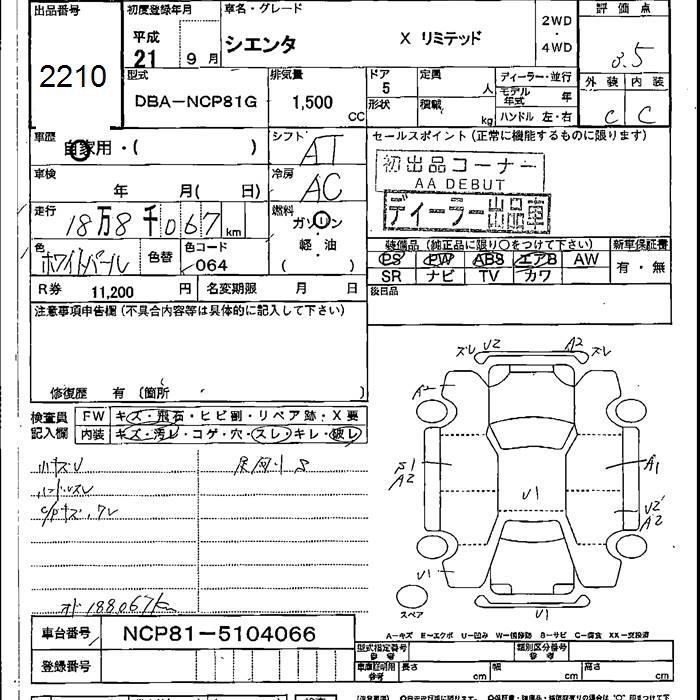 出品番号 初度登録年月 車名・グレード 2WD ・ 4WD 評価点
2210 平成 21 9月 シエンタ X リミテッド 3.5
型式 排気量 ドア 定員 ディーラー・並行 外装 内装
DBA-NCP81G 1,500 CC 5 人 モデル年式 年 C C
形状 積載 kg ハンドル 左・右
車歴 自家用・( ) シフト AT セールスポイント(正常に機能するものに限ります)
初出品コーナー
AA DEBUT
車検 年 月( 日) 冷房 AC
ディーラー
走行 18万8千067 km 燃料 ガソリン・軽油 ( )
色 ホワイトパール 色替 色コード 064
装備品(純正品に限り○をつけて下さい) 新車保証書
PS PW ABS エアB AW 有・無
SR ナビ TV カワ
R券 11,200 円 名変期限 月 日 後日品
注意事項申告欄(不具合内容等は具体的に記入して下さい)
修復歴 有(箇所 )
検査員記入欄 FW キズ・飛石・ヒビ割・リペア跡・X要
内装 キズ・汚レ・コゲ・穴・スレ・キレ・破レ
ズレ U2 A2 ズレ
A2
A2
A1
U1
U2
A2
U1
U1
スペア
オド188067km
A-キズ E-エクボ U-凹ミ W-補修跡 S-サビ C-腐食 XX-交換済
車台番号 NCP81-5104066
型式指定番号 参考 類別区分番号 参考
登録番号 車庫証明用 参考 長さ cm 幅 cm 高さ cm